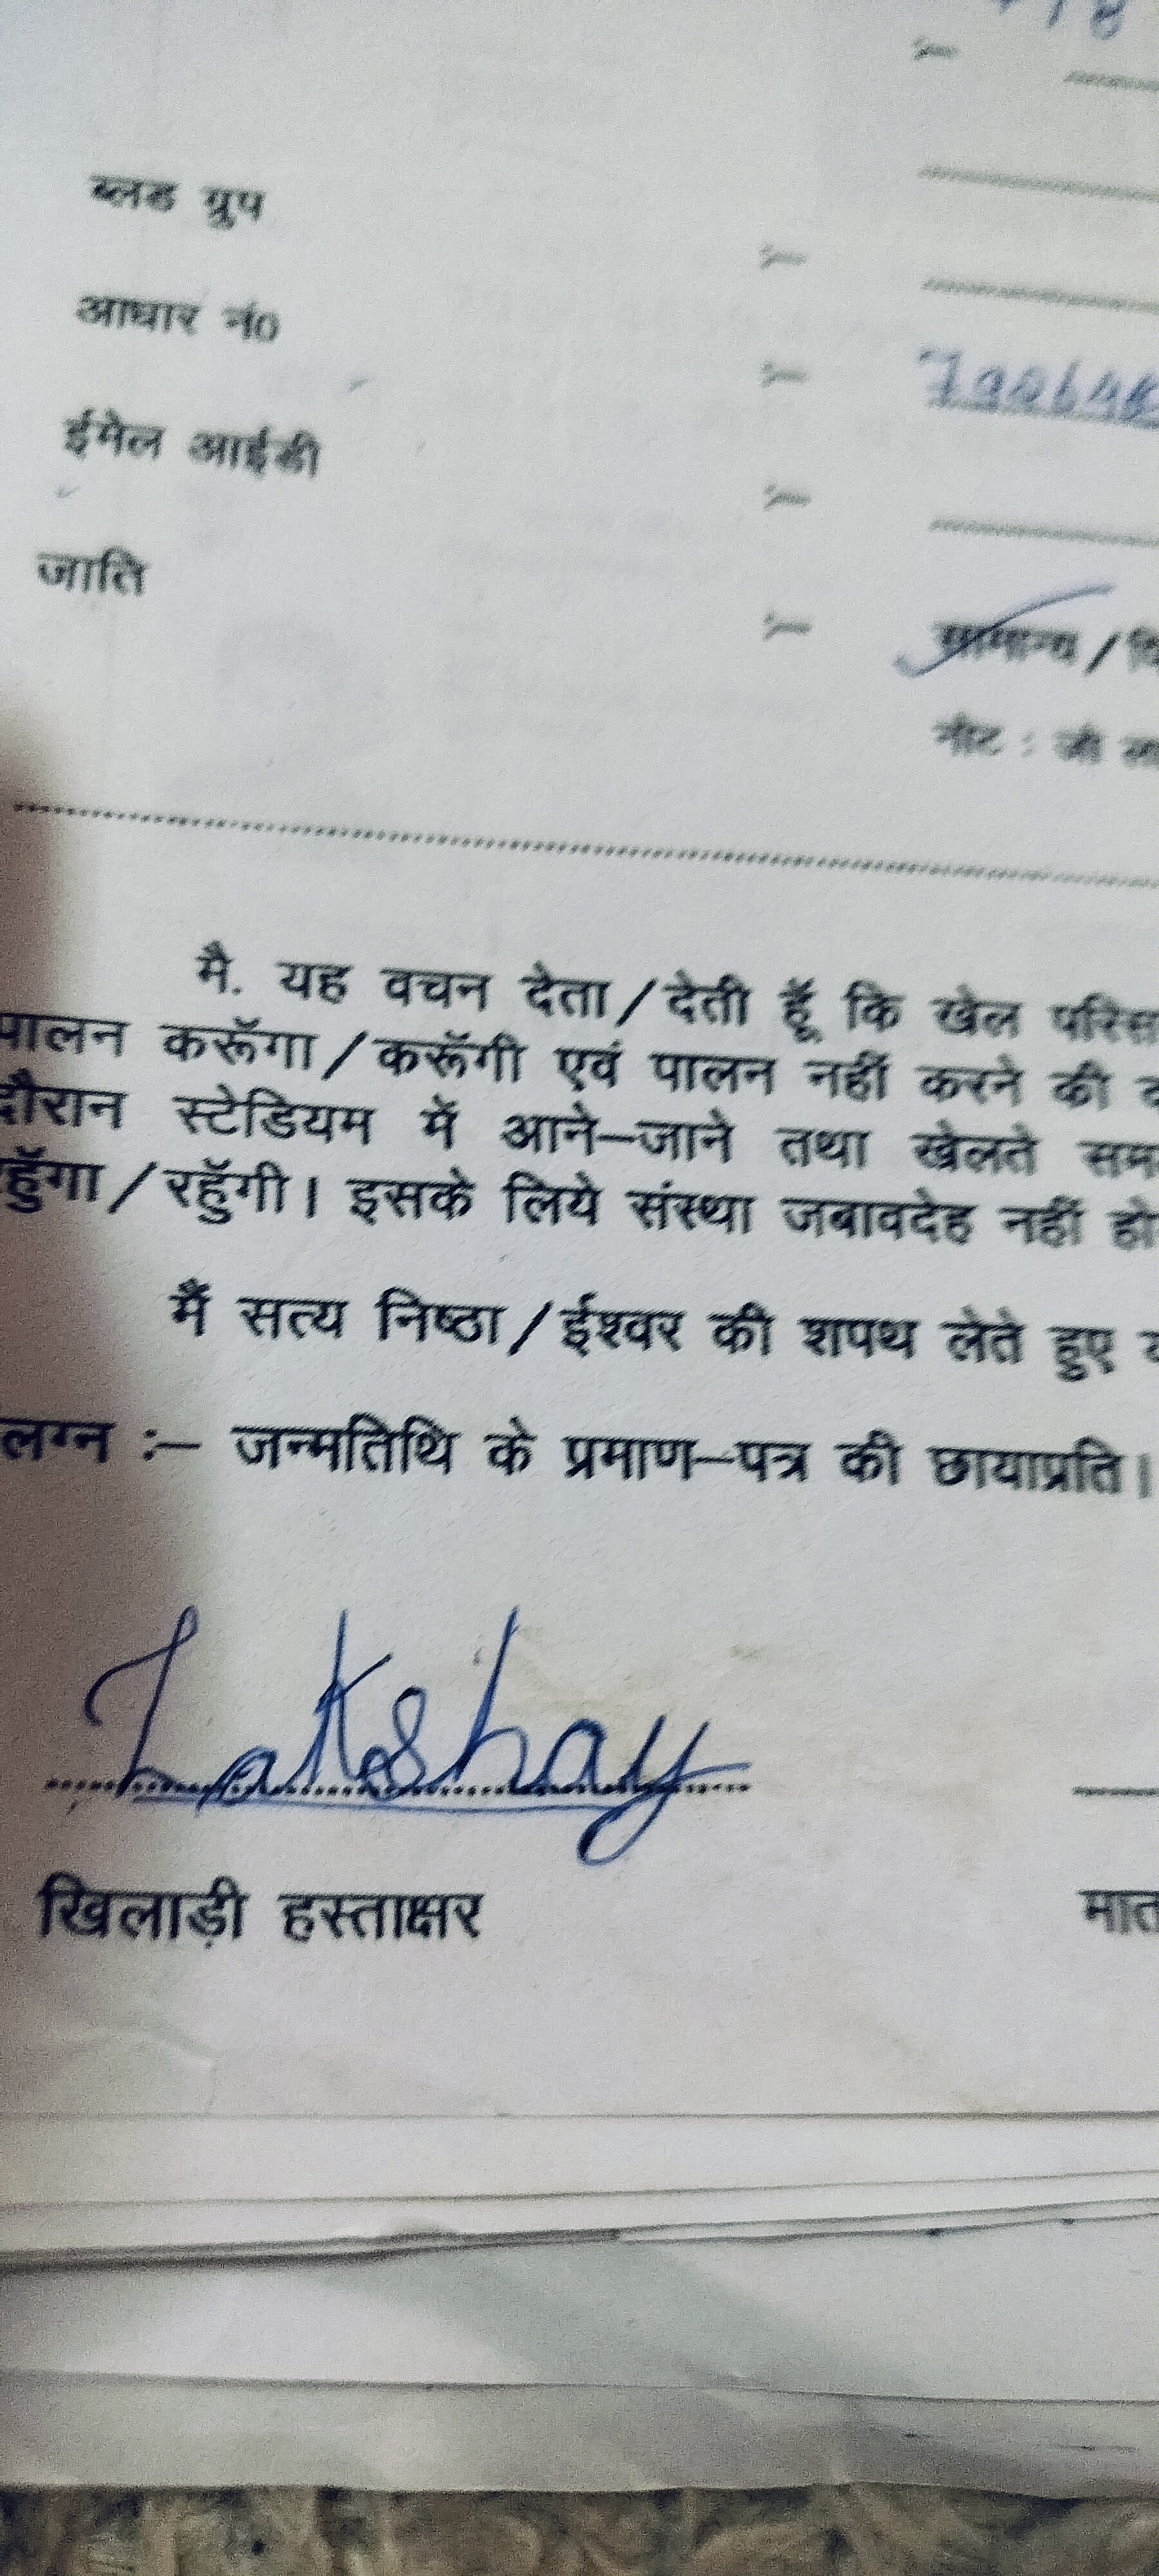 ब्लड ग्रुप :-
आधार नं0 :-
ईमेल आईडी :-
जाति :- सामान्य /
नोट : जो
मै. यह वचन देता/देती हूँ कि खेल
पालन करूँगा/करूँगी एवं पालन नहीं करने की
दौरान स्टेडियम में आने-जाने तथा खेलते
रहूँगा/रहूँगी। इसके लिये संस्था जबावदेह नहीं
मैं सत्य निष्ठा/ईश्वर की शपथ लेते हुए
लग्न :- जन्मतिथि के प्रमाण-पत्र की छायाप्रति।
Lakshay
खिलाड़ी हस्ताक्षर